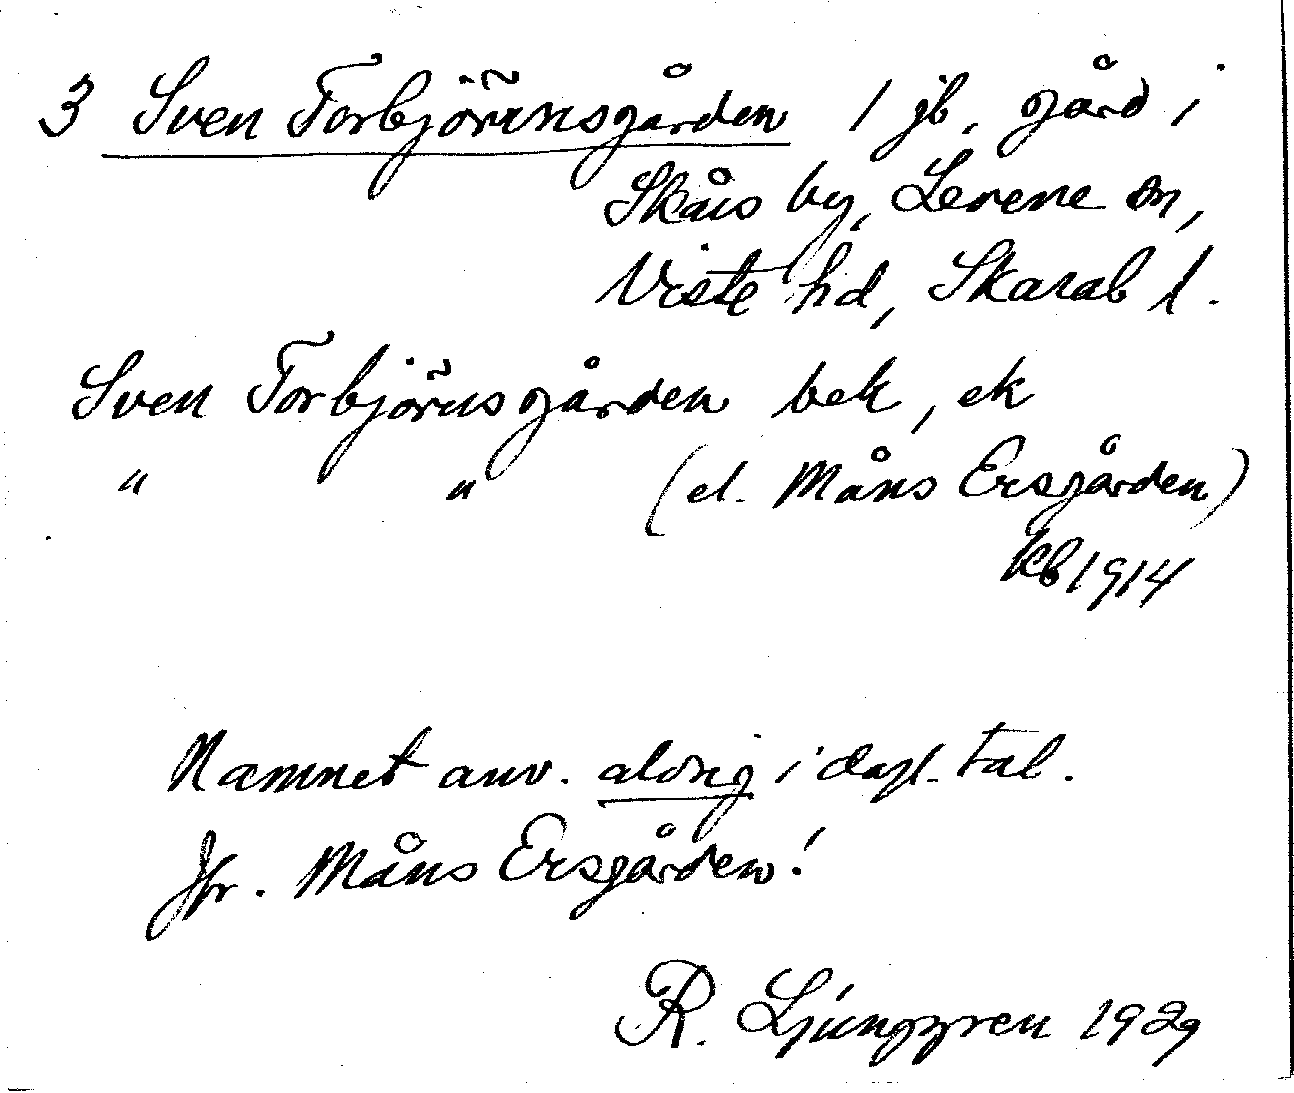 3 Sven Torbjörnsgården 1 jb. gård i
Skårs by, Levene sn,
Viste hd, Skarab l.
Sven Torbjörnsgården bek, ek
" " (el. Måns Ersgården)
kb 1914
Namnet anv. aldrig i dagl. tal.
Jfr. Måns Ersgården!
R. Ljunggren 1929